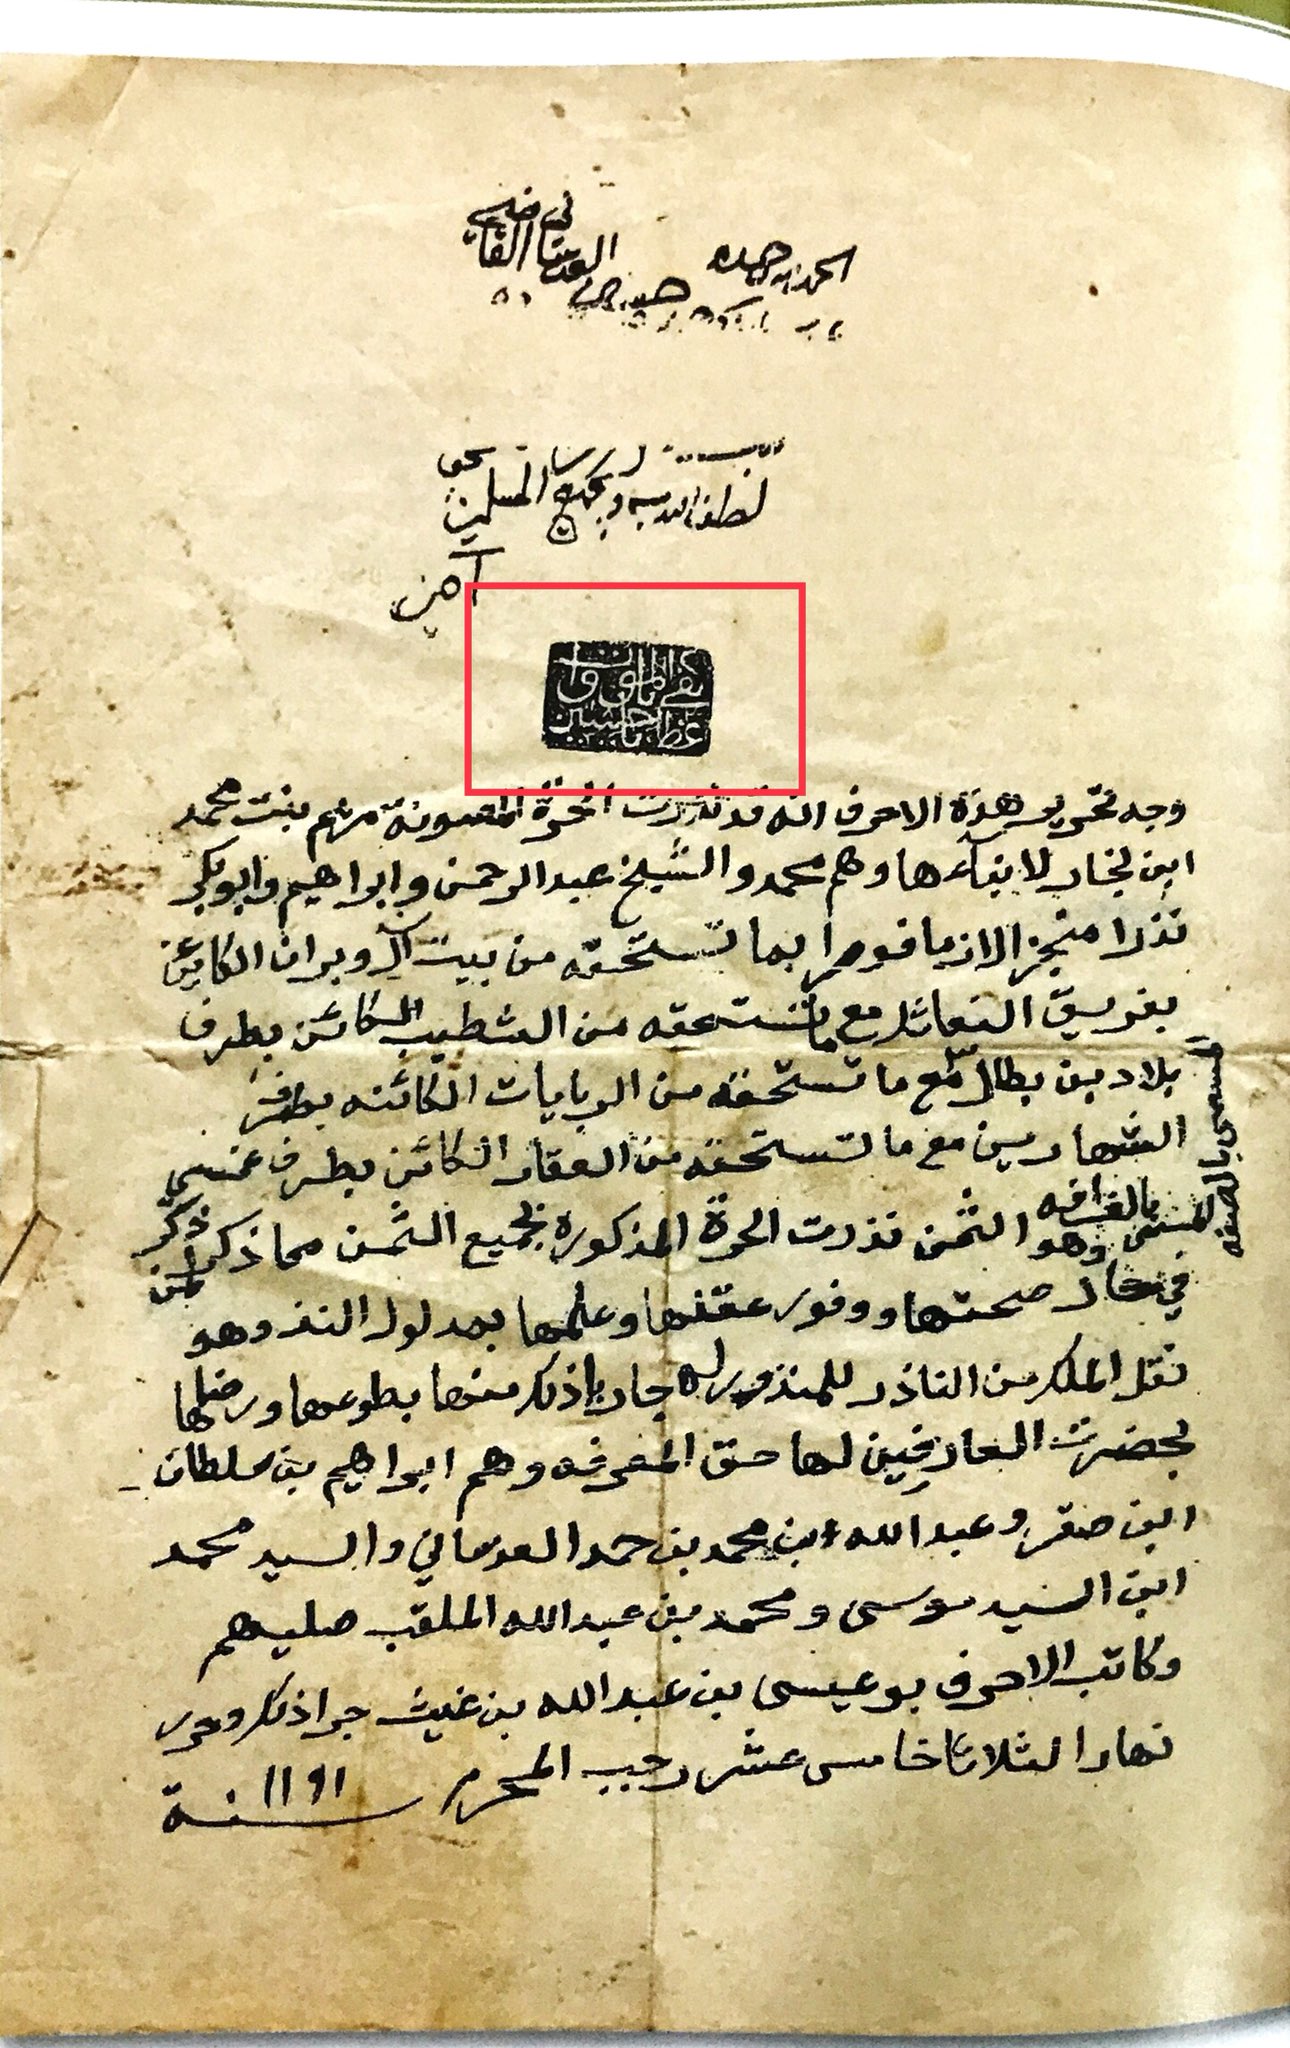 الحمد لله حمده
العدساني القاضي
لطف الله به وبجميع المسلمين
آمين
كفى بالموت واعظا يا حسين
وجه تحرير هذه الاحرف انه قد نذرت الحرة المصونة مريم بنت محمد
ابن لابنآءها وهم محمد والشيخ عبدالرحمن وابراهيم وابوبكر
نذرا منجزا لازما بما تستحقه من بيت الكائن
بفريق مع ما تستحقه من الشطيب الكائن بطرف
بلاد بن بطال مع ما تستحقه من الكائنه بطرف
مع ما تستحقه من العقار الكائن بطرف
المسمى بالغرافه وهو الثمن نذرت الحرة المذكورة بجميع الثمن مما ذكر لمن ذكر
المسمى
في حال صحتها ووفور عقلها وعلمها بمدلول النذر وهو
نقل الملك من الناذر للمنذور له جار ذلك منها بطوعها ورضاها
بحضرت العارفين لها حق المعرفه وهم ابراهيم بن سلطان
ابن صقر وعبدالله ابن محمد بن حمد العدساني والسيد محمد
ابن السيد موسى ومحمد بن عبدالله الملقب
وكاتب الاحرف بوعيسى بن عبدالله بن غيث جرا ذلك وحرر
نهار الثلاثا خامس عشر رجب المحرم سنة ١١٩١